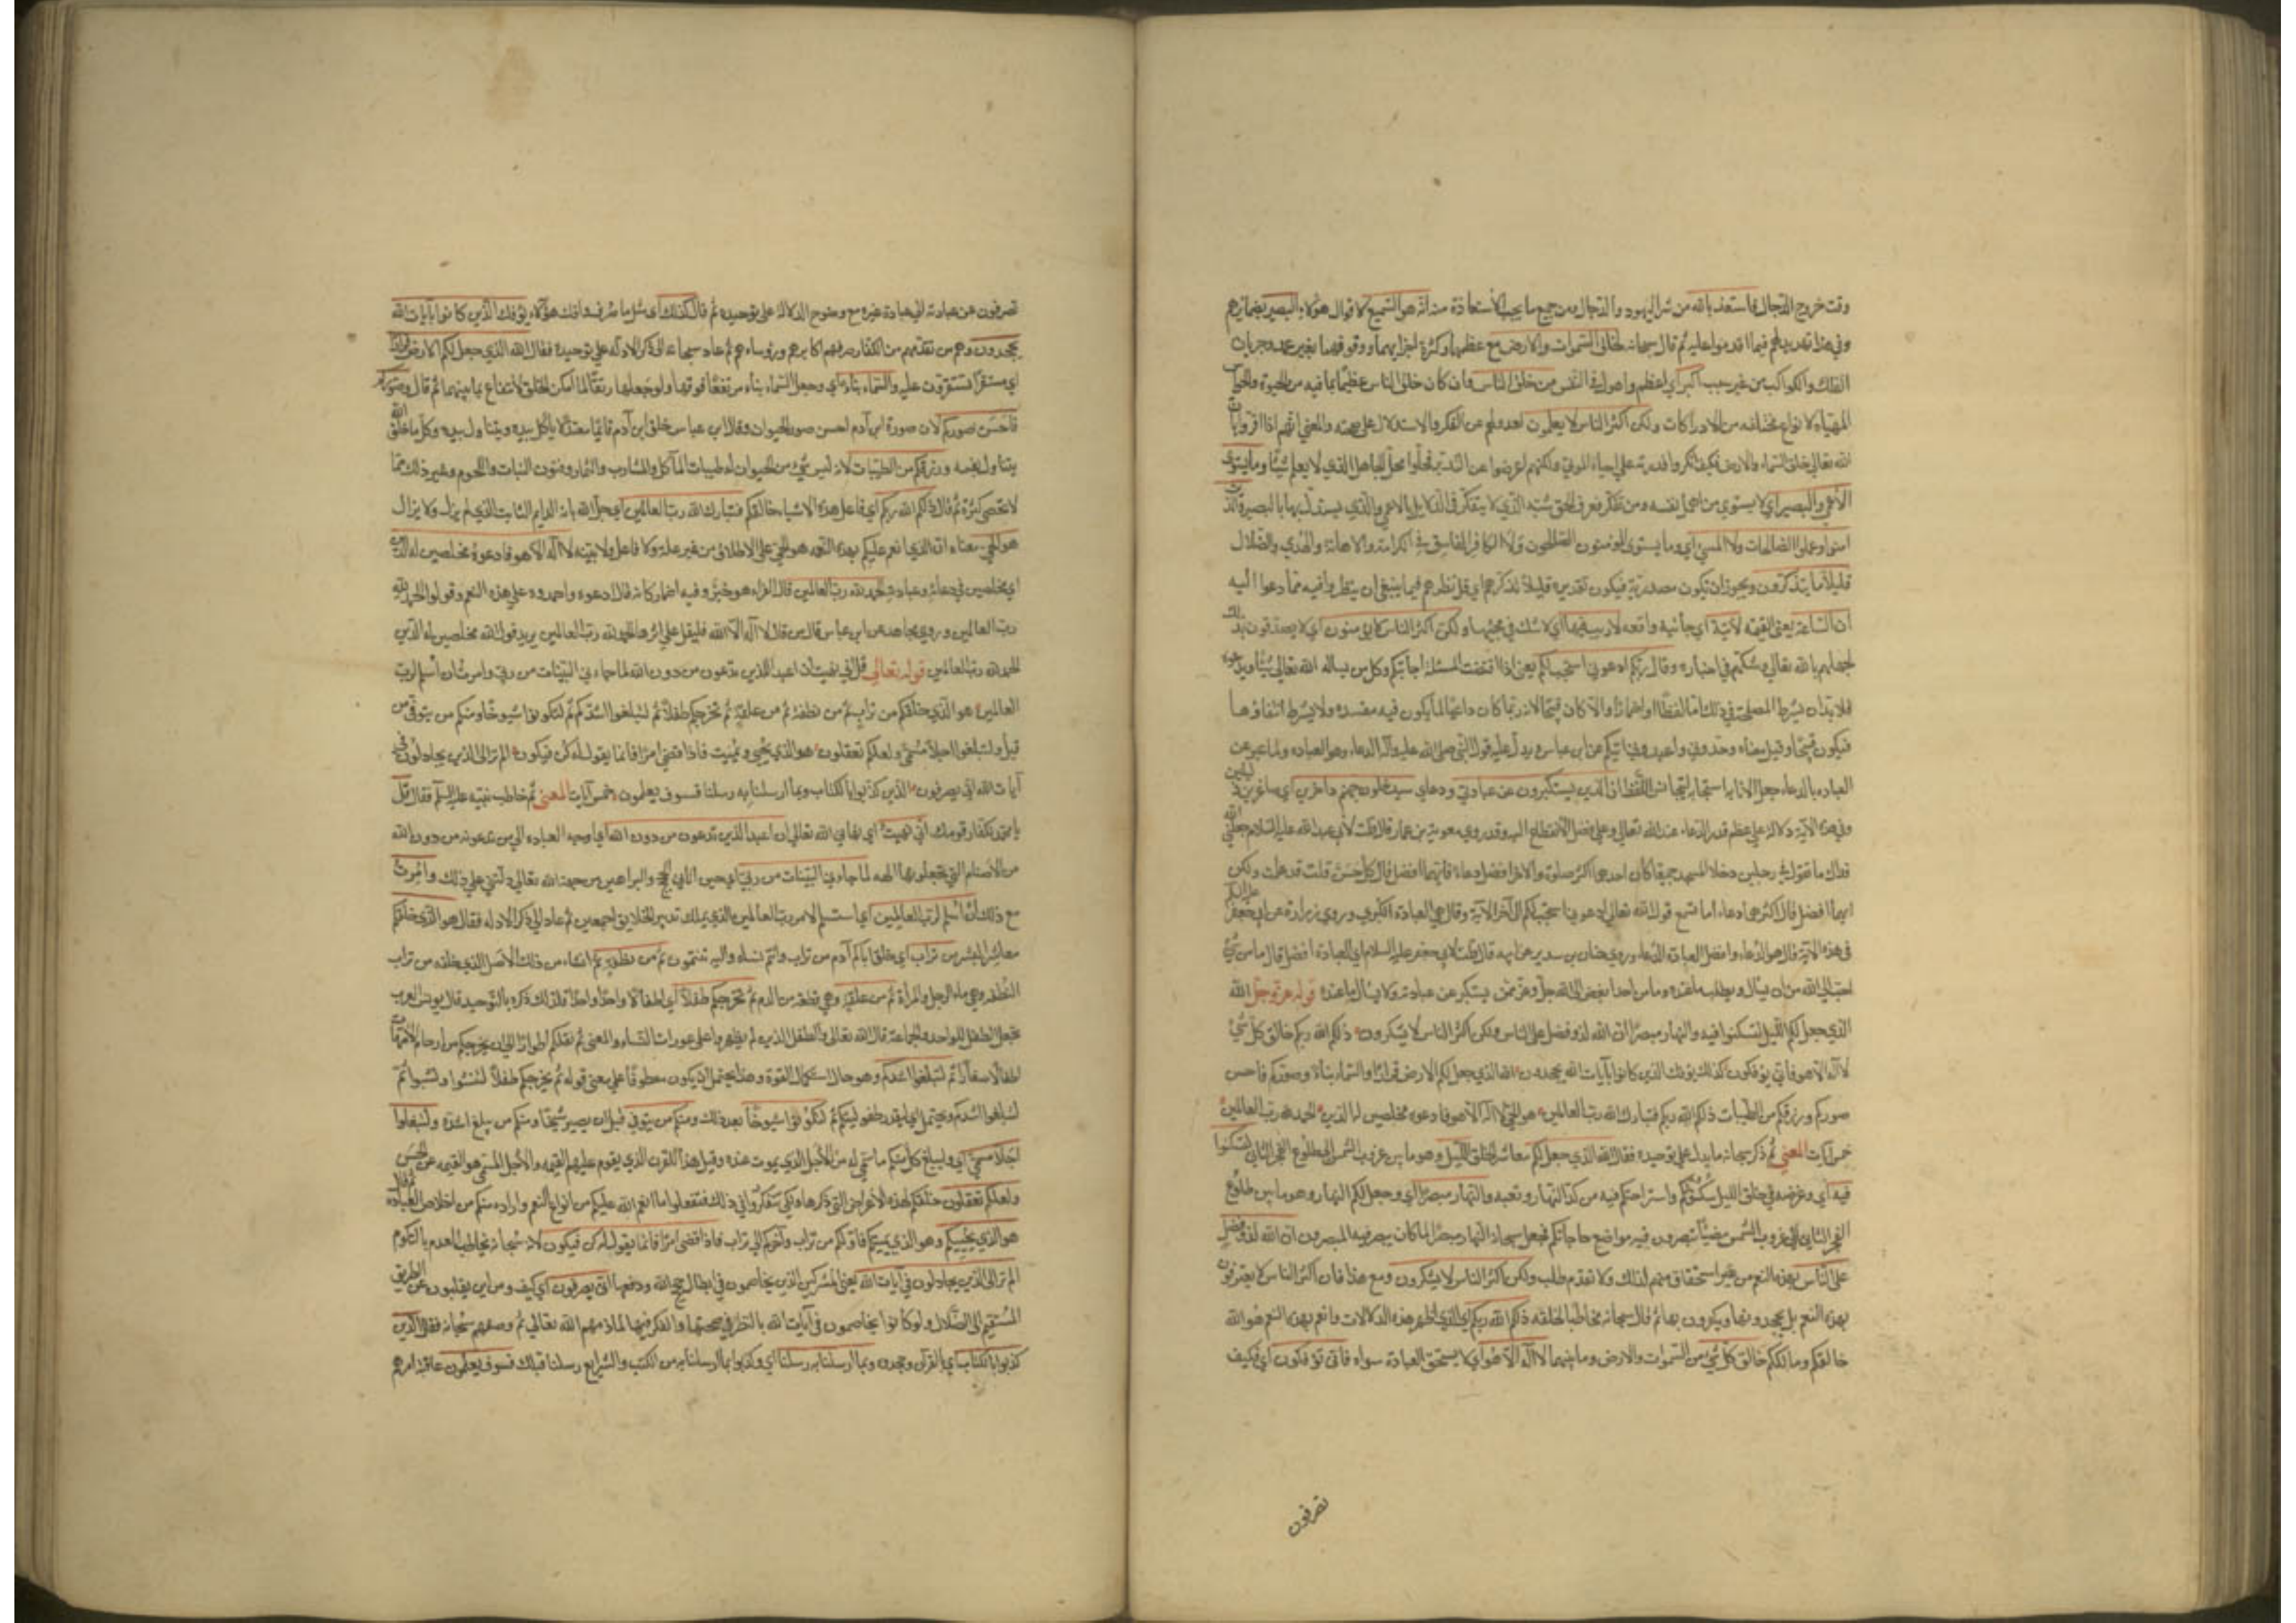 وقت خروج الدجال فاستعذ بالله من شر اليهود والدجال ومن جميع ما يجب الاستعاذة منه انه هو السميع لاقوال هؤلاء البصير بضمائرهم
وفي هذا تهديد لهم فيما اقدموا عليه ثم قال سبحانه لخلق السموات والارض مع عظمها وكثرة اجزائهما ووقوفهما بغير عمد وجريان
الفلك والكواكب من غير سبب اكبر اي اعظم واهول في النفس من خلق الناس وان كان خلق الناس عظيما بما فيه من الحيوة والحواس
المهيأة لانواع مختلفة من الادراكات ولكن اكثر الناس لا يعلمون لعدولهم عن الفكر والاستدلال على صحته والمعنى انهم اذا اقروا بان
الله تعالى خلق السماء والارض فكيف انكروا قدرته على احياء الموتى ولكنهم اعرضوا عن التدبر فحلوا محل الجاهل الذي لا يعلم شيئا وما يستوى
الاعمى والبصير اي لا يستوي من اهمل نفسه ومن تفكر فعرف الحق شبه الذي لا يتفكر في الدلايل بالاعمى والذي يستدل بها بالبصير والذين
امنوا وعملوا الصالحات ولا المسئ اي وما يستوى المؤمنون الصالحون ولا الكافر الفاسق في الكرامة والاهانة والهدى والضلال
قليلا ما يتذكرون ويجوز ان تكون مصدرية فيكون تقديره قليلا تذكرهم اي قل نظرهم فيما ينبغي ان ينظروا فيه مما دعوا اليه
ان الساعة يعني القيمة لآتية اي جائية واقعة لا ريب فيها اي لا شك في مجيئها ولكن اكثر الناس لا يؤمنون اي لا يصدقون بذلك
لجهلهم بالله تعالى وشكهم في اخباره وقال ربكم ادعوني استجب لكم يعني اذا اقتضت المصلحة اجابتكم وكل من يسأل الله تعالى شيئا ويدعوه
فلا بد ان يشرط المصلحة في ذلك اما لفظا او اضمارا والا كان قبيحا لانه ربما كان داعيا لما يكون فيه مفسدة ولا يشرط انتفاؤها
فيكون قبيحا وقيل معناه وحدوني واعبدوني اثبكم عن ابن عباس ويدل عليه قول النبي صلى الله عليه وآله الدعاء هو العبادة ولما عبر عن
العبادة بالدعاء جعل الاثابة استجابة ليتجانس اللفظ ان الذين يستكبرون عن عبادتي ودعاي سيدخلون جهنم داخرين اي صاغرين ذليلين
وفي هذه الآية دلالة على عظم قدر الدعاء عند الله تعالى وعلى فضل الانقطاع اليه وقد روى معوية بن عمار قال قلت لابي عبد الله عليه السلام جعلني الله
فداك ما تقول في رجلين دخلا المسجد جميعا كان احدهما اكثر صلوة والآخر افضل دعاء فايهما افضل قال كل حسن قلت قد علمت ولكن
ايهما افضل قال اكثرهما دعاء اما تسمع قول الله تعالى ادعوني استجب لكم الى آخر الآية وقال هي العبادة الكبرى وروى زرارة عن ابي جعفر عليه السلام
في هذه الآية قال هو الدعاء وافضل العبادة الدعاء وروى حنان بن سدير عن ابيه قال قلت لابي جعفر عليه السلام اي العبادة افضل قال ما من شئ
احب الى الله من ان يسأل ويطلب ما عنده وما من احد ابغض الى الله جل وعز ممن يستكبر عن عبادته ولا يسأل ما عنده قوله عز وجل الله
الذي جعل لكم الليل لتسكنوا فيه والنهار مبصرا ان الله لذو فضل على الناس ولكن اكثر الناس لا يشكرون ذلكم الله ربكم خالق كل شئ
لا اله الا هو فانى تؤفكون كذلك يؤفك الذين كانوا بآيات الله يجحدون الله الذي جعل لكم الارض قرارا والسماء بناء وصوركم فاحسن
صوركم ورزقكم من الطيبات ذلكم الله ربكم فتبارك الله رب العالمين هو الحي لا اله الا هو فادعوه مخلصين له الدين الحمد لله رب العالمين
خمس آيات المعنى ثم ذكر سبحانه ما يدل على توحيده فقال الله الذي جعل لكم معاشر الخلق الليل وهو ما بين غروب الشمس الى طلوع الفجر الثاني لتسكنوا
فيه اي وغرضه في خلق الليل سكونكم واستراحتكم فيه من كد النهار وتعبه والنهار مبصرا اي وجعل لكم النهار وهو ما بين طلوع
الفجر الثاني الى غروب الشمس مضيئا تبصرون فيه مواضع حاجاتكم فجعل سبحانه النهار مبصرا لما كان يبصر فيه المبصرون ان الله لذو فضل
على الناس بهذه النعم من غير استحقاق منهم لذلك ولا تقدم طلب ولكن اكثر الناس لا يشكرون ومع هذا فان اكثر الناس لا يعترفون
بهذه النعم بل يجحدونها ويكفرون بها ثم قال سبحانه مخاطبا لخلقه ذلكم الله ربكم اي الذي اظهر هذه الدلالات وانعم بهذه النعم هو الله
خالقكم ومالككم خالق كل شئ من السموات والارض وما بينهما لا اله الا هو اي لا يستحق العبادة سواه فانى تؤفكون اي فكيف
تصرفون
تصرفون عن عبادته الى عبادة غيره مع وضوح الدلالة على توحيده ثم قال كذلك اي مثل ما صرف وافك هؤلاء يؤفك الذين كانوا بآيات الله
يجحدون وهم من تقدمهم من الكفار صرفهم اكابرهم ورؤساءهم ثم عاد سبحانه الى ذكر الادلة على توحيده فقال الله الذي جعل لكم الارض قرارا
اي مستقرا تستقرون عليه والسماء بناء اي وجعل السماء بناء مرتفعا فوقها ولو جعلها رتقا لما امكن الخلق الانتفاع بما بينهما ثم قال وصوركم
فاحسن صوركم لان صورة ابن آدم احسن صور الحيوان وقال ابن عباس خلق ابن آدم قائما معتدلا ياكل بيده ويتناول بيده وكل ما خلق الله
يتناول بفيه ورزقكم من الطيبات لانه ليس شئ من الحيوان له طيبات المآكل والمشارب والثمار وفنون النبات واللحوم وغير ذلك مما
لا تحصى كثرة ثم قال ذلكم الله ربكم اي فاعل هذه الاشياء خالقكم فتبارك الله رب العالمين اي جل الله بانه الدايم الثابت الذي لم يزل ولا يزال
هو الحي معناه ان الذي انعم عليكم بهذه النعم هو الحي على الاطلاق من غير علة ولا فاعل ولا بنية لا اله الا هو فادعوه مخلصين له الدين
اي مخلصين في دعائه وعبادته الحمد لله رب العالمين قال الفراء هو خبر وفيه اضمار كانه قال ادعوه واحمدوه على هذه النعم وقولوا الحمد لله
رب العالمين وروى مجاهد عن ابن عباس قال من قال لا اله الا الله فليقل على اثرها الحمد لله رب العالمين يريد قول الله مخلصين له الدين
الحمد لله رب العالمين قوله تعالى قل اني نهيت ان اعبد الذين تدعون من دون الله لما جاءني البينات من ربي وامرت ان اسلم لرب
العالمين هو الذي خلقكم من تراب ثم من نطفة ثم من علقة ثم يخرجكم طفلا ثم لتبلغوا اشدكم ثم لتكونوا شيوخا ومنكم من يتوفى من
قبل ولتبلغوا اجلا مسمى ولعلكم تعقلون هو الذي يحيي ويميت فاذا قضى امرا فانما يقول له كن فيكون الم تر الى الذين يجادلون في
آيات الله انى يصرفون الذين كذبوا بالكتاب وبما ارسلنا به رسلنا فسوف يعلمون خمس آيات المعنى ثم خاطب نبيه عليه السلم فقال قل
يا محمد لكفار قومك اني نهيت اي نهاني الله تعالى ان اعبد الذين تدعون من دون الله اي اوجه العبادة الى من تدعونه من دون الله
من الاصنام التي تجعلونها الهة لما جاءني البينات من ربي اي حين اتاني الحجج والبراهين من جهة الله تعالى دلتني على ذلك وامرت
مع ذلك ان اسلم لرب العالمين اي استسلم لامر رب العالمين الذي يملك تدبير الخلايق اجمعين ثم عاد الى ذكر الادلة فقال هو الذي خلقكم
معاشر البشر من تراب اي خلق اباكم آدم من تراب وانتم نسله واليه تنتمون ثم من نطفة ثم انشاء من ذلك الاصل الذي خلقه من تراب
النطفة وهي ماء الرجل والمرأة ثم من علقة وهي قطعة من الدم ثم يخرجكم طفلا اي اطفالا واحدا واحدا فلذلك ذكره بالتوحيد قال يونس العرب
تجعل الطفل للواحد والجماعة قال الله تعالى والطفل الذين لم يظهروا على عورات النساء والمعنى ثم ينقلكم اطوارا الى ان يخرجكم من ارحام الامهات
اطفالا صغارا ثم لتبلغوا اشدكم وهو حال استكمال القوة وهذا يحتمل ان يكون معطوفا على معنى قوله ثم يخرجكم طفلا لتنشئوا ولتشبوا ثم
لتبلغوا اشدكم ويحتمل اي بعد طفوليتكم ثم لتكونوا شيوخا بعد ذلك ومنكم من يتوفى قبل ان يصير شيخا ومنكم من يبلغ اشده ولتبلغوا
اجلا مسمى اي وليبلغ كل منكم ما سمي له من الاجل الذي يموت عنده وقيل هذا للقرن الذي يقوم عليهم القيمة والاجل المسمى هو القيمة عن الحسن
ولعلكم تعقلون خلقكم لهذه الاغراض التي ذكرها ولكي تتفكروا في ذلك فتعقلوا ما انعم الله عليكم من انواع النعم واراده منكم من اخلاص العبادة ثم قال
هو الذي يحييكم وهو الذي يميتكم فاولكم من تراب وآخركم الى تراب فاذا قضى امرا فانما يقول له كن فيكون لانه سبحانه يخاطب المعدوم بالتكوم
الم تر الى الذين يجادلون في آيات الله يعني المشركين الذين يخاصمون في ابطال حجج الله ودفعها انى يصرفون اي كيف ومن اين يقلبون عن الطريق
المستقيم الى الضلال ولو كانوا يخاصمون في آيات الله بالنظر في صحتها والفكر فيها لما ذمهم الله تعالى ثم وصفهم سبحانه فقال الذين
كذبوا بالكتاب اي بالقرآن وجحدوه وبما ارسلنا به رسلنا اي وكذبوا بما ارسلنا به من الكتب والشرايع رسلنا قبلك فسوف يعلمون عاقبة امرهم